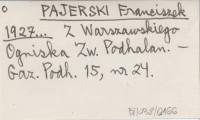 PAJERSKI Franciszek
1927... Z Warszawskiego
Ogniska Zw. Podhalan. –
Gaz. Podh. 15, nr 24.